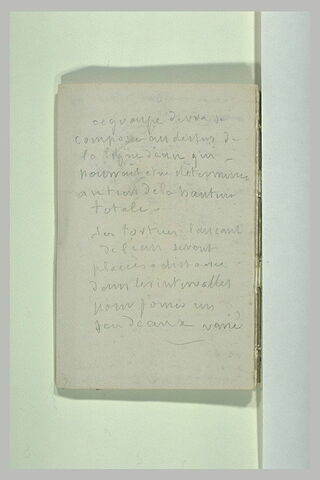 ce groupe devra se
composer au dessus de
la ligne d'eau qui
pourrait être determinée
au tiers de la hauteur
totale.
Les tortues lançant
de l'eau seront
placées à distance
dans les intervalles
pour former un
jeu d'eaux varié